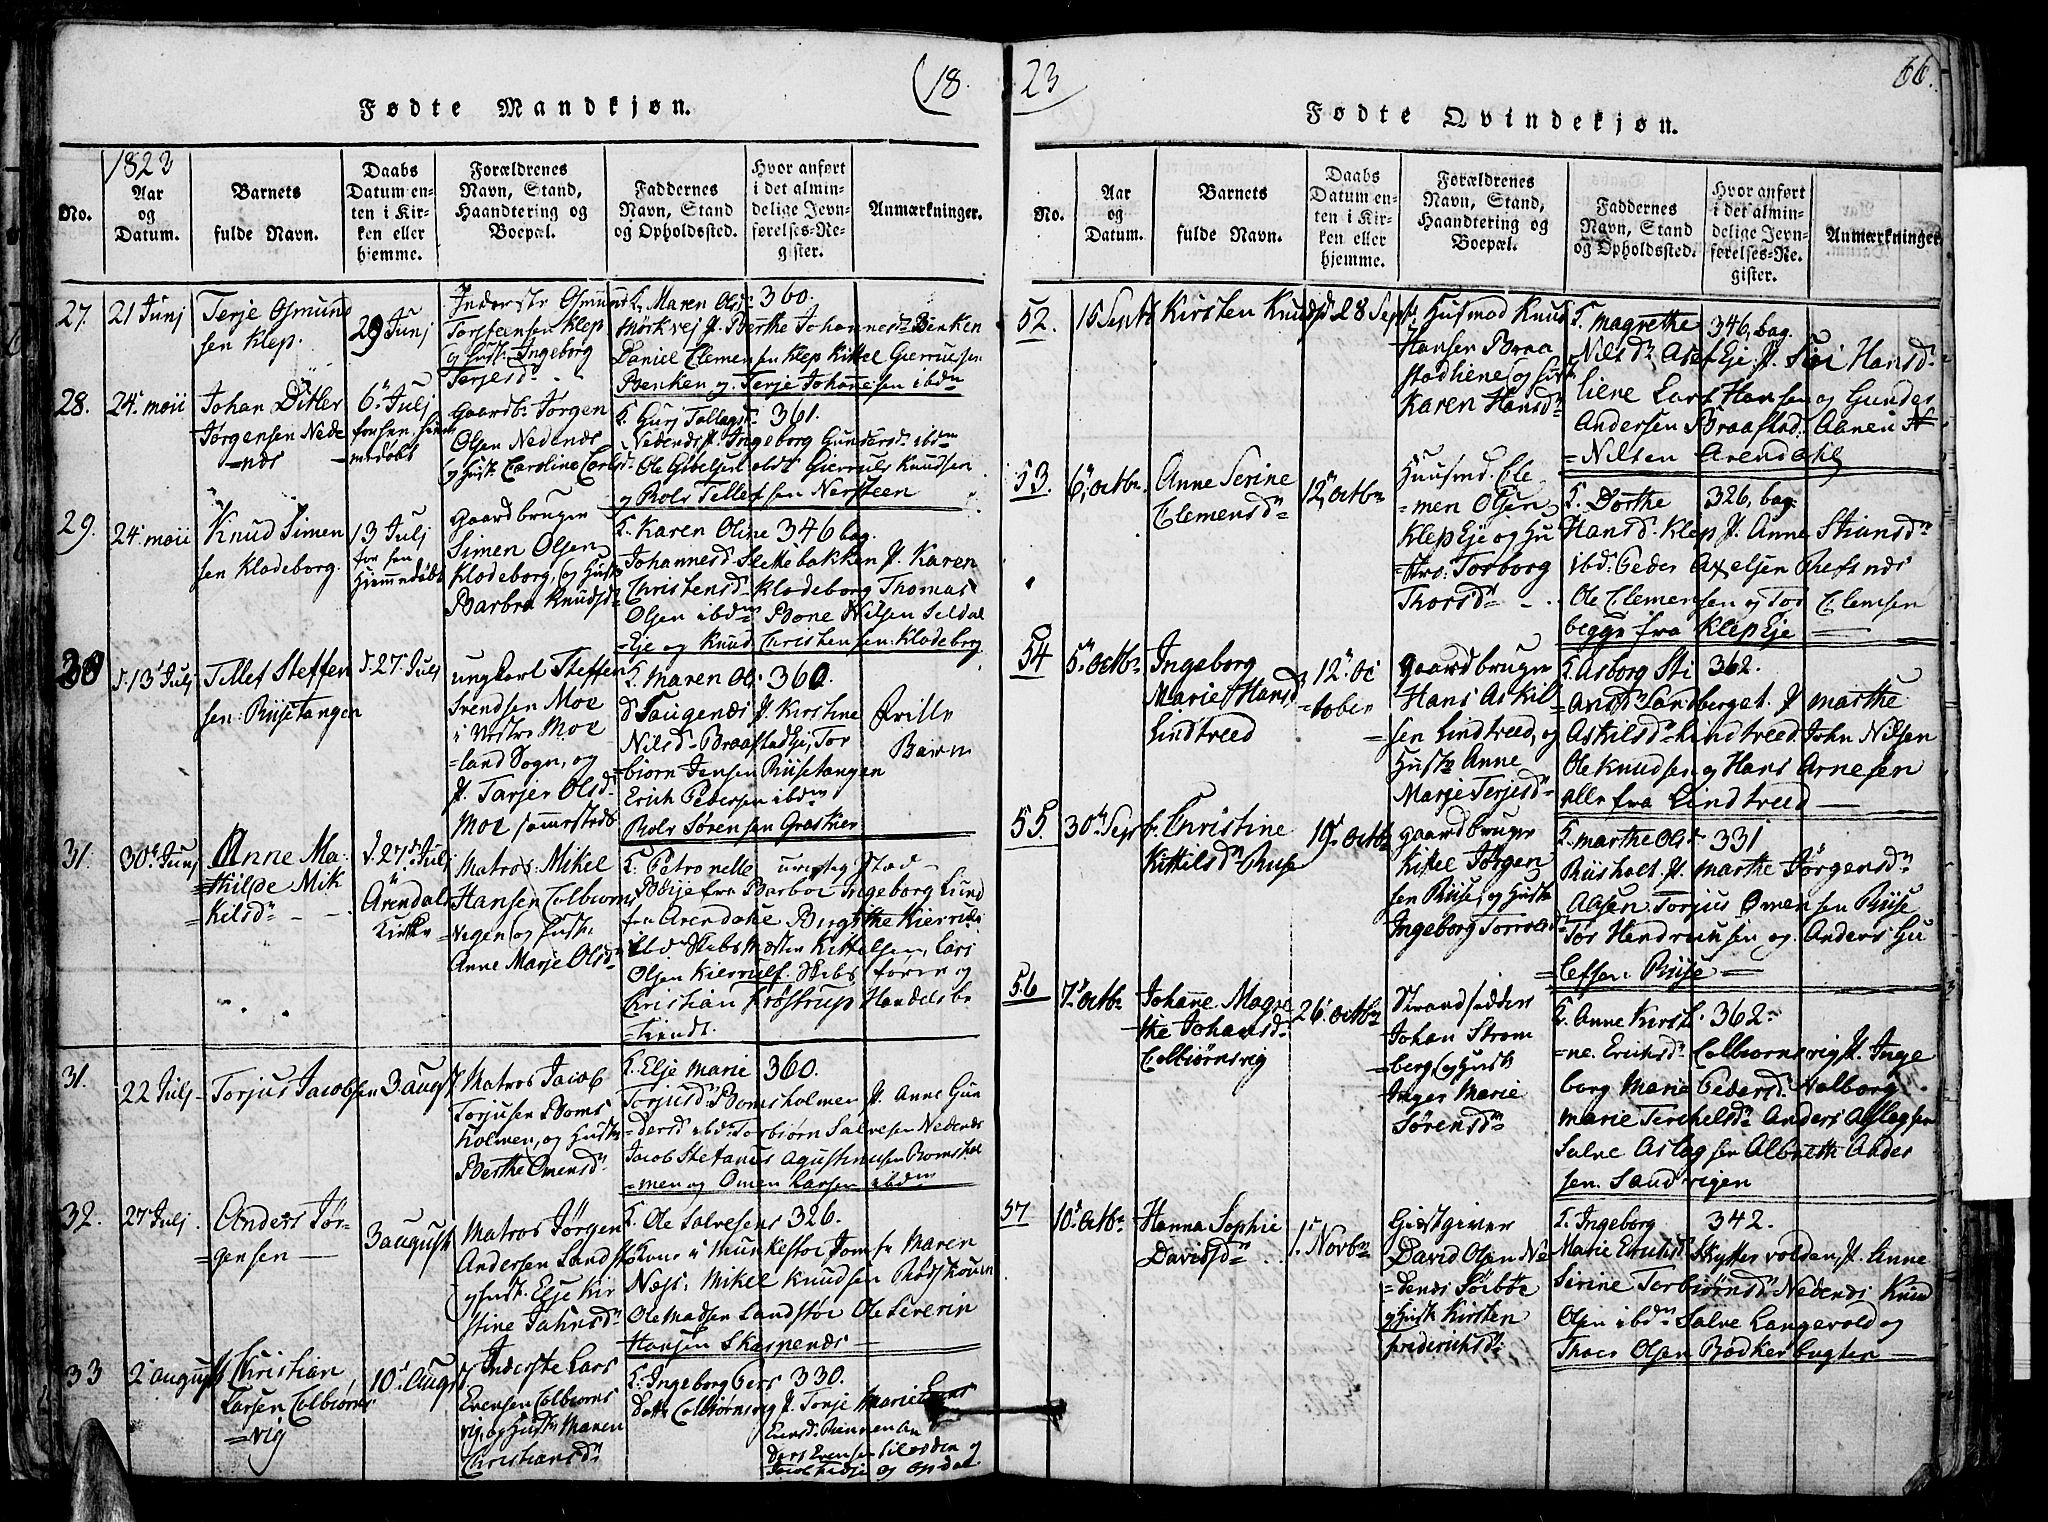 18
23
66.
Fødte Mandkjøn.
1823
No.
Aar
og
Datum.
Barnets
fulde Navn.
Daabs
Datum en-
ten i Kir-
ken eller
hjemme.
Forældrenes
Navn, Stand,
Haandtering og
Boepæl.
Faddernes
Navn, Stand
og Opholdssted.
Hvor anført
i det almin-
delige Jevn-
førelses-Re-
gister.
Anmærkninger.
27. 21 Junj
Terje Osmund
sen Klep.
29 Junj
Inderste Osmund
Torstensen Klep
og Hust. Ingeborg
Terjesd.
F. Maren Olsd. 360.
Mørkvej P. Berthe Johannesd. Benken
Daniel Clemensen Klep Kittel Gierrulsen
Benken og Terje Johannesen ibdm
28. 24. maii
Johan Ditlev
Jørgensen Nede
=nes
6. Julj
Gaardb. Jørgen
Olsen Nedenes
og Hust. Caroline Carlsd.
F. Gurj Tallags 361.
Nedenes P. Ingeborg Gundersd. ibdm
Ole Gibelsen oldt Gierruls Knudsen
og Rolv Tellefsen Nersteen
29. 24. maii
Knud Simen
sen Klodeborg.
13 Julj
for sen
hjemmedøbt
Gaardbruger
Simen Olsen
Klodeborg, og Hust.
Barbra Knudsd.
F. Karen Oline 346 bag.
Johannesd. Slettebakken P. Karen
Christensd. Klodeborg Thomas
Olsen ibdm Bone Nilsen Seldal
=Eje og Knud Christensen Klodeborg
30 13 Julj
Tellef Steffen
sen. Riisetangen
27 Julj
ungkarl Steffen
Svendsen Moe
i Vestre Moe
land Sogn, og
P. Tarjer Olsd.
Moe sammesteds
F. Maren Ol. 360.
d. Saugenes P. Kirstine
Nilsd. Braastad Eje, Tor
biorn Jensen Riisetangen
Erich Pedersen ibdm
Rolv Sørensen Grastker
Barn
31. 30. Junj
Anne Ma-
=thilde Mik
=kilsd.
27 Juli
i
Arendals
Kirke
Matros Mikel
Hansen Colbiorns
vegen og Hust.
Anne Marje Olsd.
F. Petronelle
Børje fra Barboe Ingeborg Lund
fra Arendahl
Olsen Kierrulf. Skibs
Christian Frøstrup Handelsbe
=tiendt.
31. 22 Julj
Torjus Jacobsen
3 august
Matros Jacob
Torjusen Boms
holmen, og Hust.
Berthe Omensd.
F. Elje Marie 360.
Torjusd. Bomsholmen P. Anne Gun
=dersd. ibd. Torbiørn Salvesen Nedenes
Jacob Stefanus Agustinusen Bomshol
=men og Omen Larsen ibdm
32. 27 Julj.
Anders Jør-
=gensen
3 august
Matros Jørgen
Andersen Sandst
og Hust. Elje Kir
stine Jahnsd.
F. Ole Salvesens 326.
Kone i Munkestoe Jomfr Maren
Næs. Mikel Knudsen
Ole Madsen Sandstøe Ole Severin
Hansen Skarpenæs
33 2. august
Christian
Larsen Colbiorns
=vig
10. Aug.
Inderste Lars
Evensen Colbiorns
vig, og Hust. Maren
Christiansd.
F. Ingeborg Gers 330.
datt. Colbiørnsvig P. Tonje Marie
Fødte Qvindekjøn.
No.
Aar
og
Datum.
Barnets
fulde Navn.
Daabs
Datum en-
ten i Kir-
ken eller
hjemme.
Forældrenes
Navn, Stand,
Haandtering og
Boepæl.
Faddernes
Navn, Stand
og Opholdssted.
Hvor anført
i det almin-
delige Jevn-
førelses-Re-
gister.
Anmærkninger.
52. 15 Septb.
Kirsten Knudsd.
28 Septb.
Husmod Knud
Hansen Braa
stadliene og Hust.
Karen Hansd.
F. Magrethe 346, bag.
Nilsd. Asef Eje P. Siri Hansd.
liene Lars Hansen og Gunder
Andersen Braastad. Aanen
=Nilsen Arendahl
53. 6. octbr.
Anne Serine
Clemensd.
12. octbr
Huusmd. Cle
men Olsen
Klep Eje og Hu
=stro: Torborg
Thorsd.
F. Dorthe 326, bag.
Hansd. Klep P. Anne Stiansd.
ibd. Peder Axelsen Refsnes
Ole Clemensen og Tor Clemsen
begge fra Klep Eje
54 5. octbr.
Ingeborg
Marie Hansd.
Lindtreed
12. oc
=tober
Gaardbruger
Hans Askil
sen Lindtreed, og
Hust. Anne
Marje Terjesd.
F. Asborg Sti 362.
=ansd. Sandberget. P. Marthe
Askilsd. Lindtreed. John Nilsen
Ole Knudsen og Hans Arnesen
alle fra Lindtreed
55. 30. Sept
Christine
Kittilsd. Ruse
19. octbr
gaardbruger
Kikel Jørgen
sen Riise, og Hust.
Ingeborg Torvesd.
F. Marthe Ols 331
Riisholt. P. Marthe Jørgensd.
Aasen Torjus Omensen Riise
Tor Hendricusen og Anders Gu
=lefsen Riise
56 7. octbr
Johanne Magre
=the Johansd.
Colbiørnsvig
26. octbr
Strandsidder
Johan Strom
=berg og Hust.
Inger Marie
Sørensd.
F. Anne Kirsti 362.
=ne Erichsd. Colbiornsvig P. Inge
borg Marie Pedersd. Valborg
Marie Terchelsd. Anders Aslagsen
Salve Aslagsen Albreth Ander
sen. Sandvigen
57 10. octbr.
Hanna Sophie
Davidsd.
1. Novbr
Giestgiver
David Olsen Ne
=denes Søeboe
og Hust. Kirsten
Frederichsd.
F. Ingeborg 342.
Marie Erichsd. Skyttervolden, P. Anne
Serine Torbiørnsd. Nedenes Knud
Olsen ibdm Salve Langevold og
Thoer Olsen Bødkerbugten